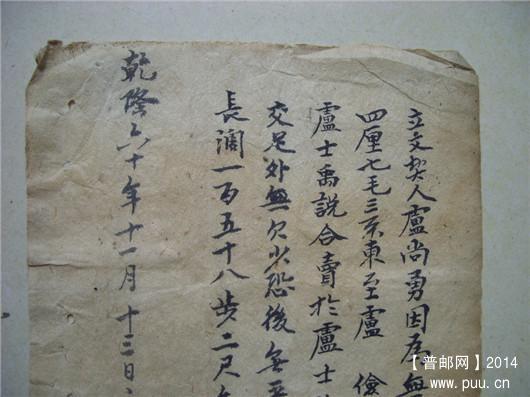 立文契人盧尚勇因為無
四厘七毛三系東至盧 儉
盧士禹說合賣於盧士
交足外無欠少恐後無
長濶一百五十八步二尺
乾隆六十年十一月 十三日
【普邮网】2014
www.puu.cn